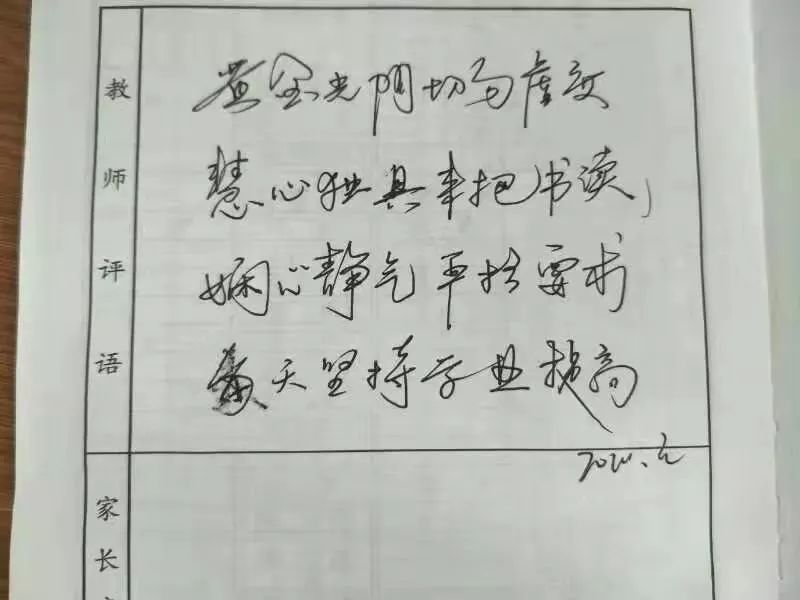 教师评语
黄金光阴切勿虚度
慧心独具来把书读,
娴心静气严格要求
每天坚持学业提高
家长